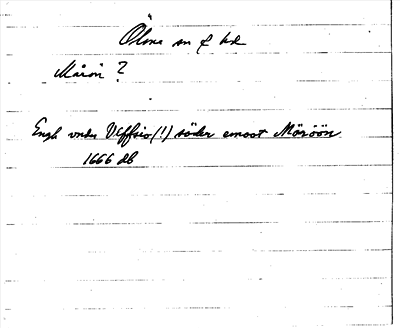 Ölme sn f hd
Måsön?
Engh vnder Ulffsiö(!) söder emoot Måröön
1666 db